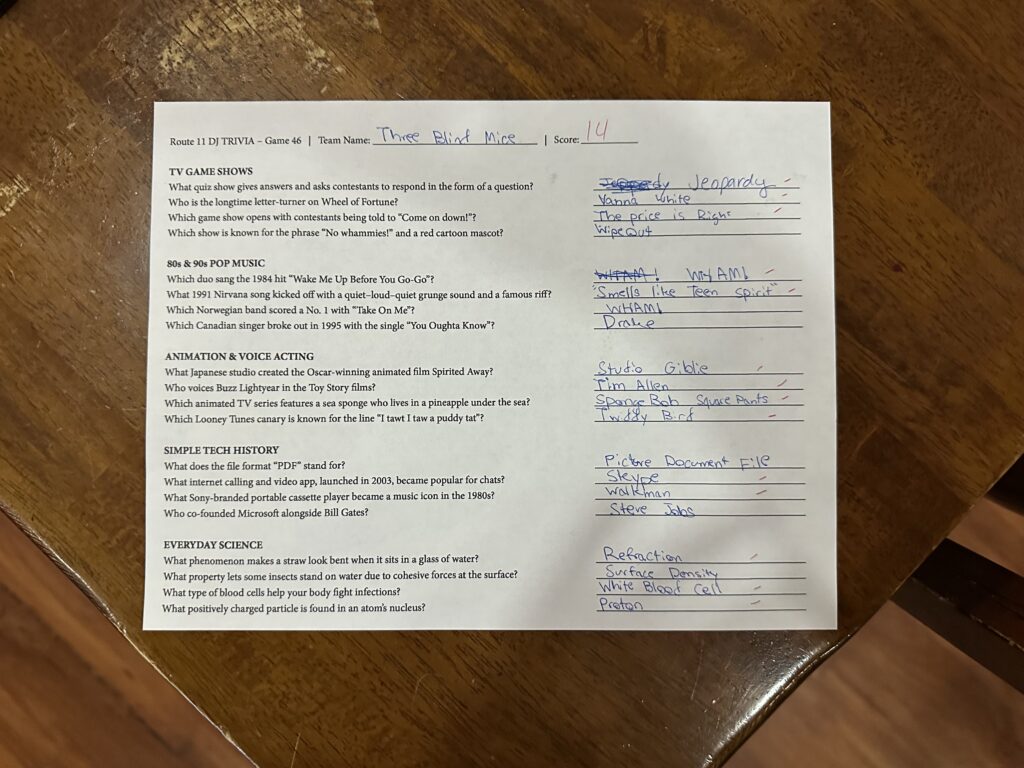 Route 11 DJ TRIVIA – Game 46 | Team Name: Three Blind Mice | Score: 14
TV GAME SHOWS
What quiz show gives answers and asks contestants to respond in the form of a question? Jeopardy
Who is the longtime letter-turner on Wheel of Fortune? Vanna White
Which game show opens with contestants being told to “Come on down!”? The price is Right
Which show is known for the phrase “No whammies!” and a red cartoon mascot? Wipe Out
80s & 90s POP MUSIC
Which duo sang the 1984 hit “Wake Me Up Before You Go-Go”? WHAM! WHAM!
What 1991 Nirvana song kicked off with a quiet–loud–quiet grunge sound and a famous riff? "Smells like Teen spirit"
Which Norwegian band scored a No. 1 with “Take On Me”? WHAM!
Which Canadian singer broke out in 1995 with the single “You Oughta Know”? Drake
ANIMATION & VOICE ACTING
What Japanese studio created the Oscar-winning animated film Spirited Away? Studio Giblie
Who voices Buzz Lightyear in the Toy Story films? Tim Allen
Which animated TV series features a sea sponge who lives in a pineapple under the sea? Sponge Bob Square Pants
Which Looney Tunes canary is known for the line “I tawt I taw a puddy tat”? Twiddy Bird
SIMPLE TECH HISTORY
What does the file format “PDF” stand for? Picture Document File
What internet calling and video app, launched in 2003, became popular for chats? Skype
What Sony-branded portable cassette player became a music icon in the 1980s? Walkman
Who co-founded Microsoft alongside Bill Gates? Steve Jobs
EVERYDAY SCIENCE
What phenomenon makes a straw look bent when it sits in a glass of water? Refraction
What property lets some insects stand on water due to cohesive forces at the surface? Surface Density
What type of blood cells help your body fight infections? White Blood Cell
What positively charged particle is found in an atom’s nucleus? Proton